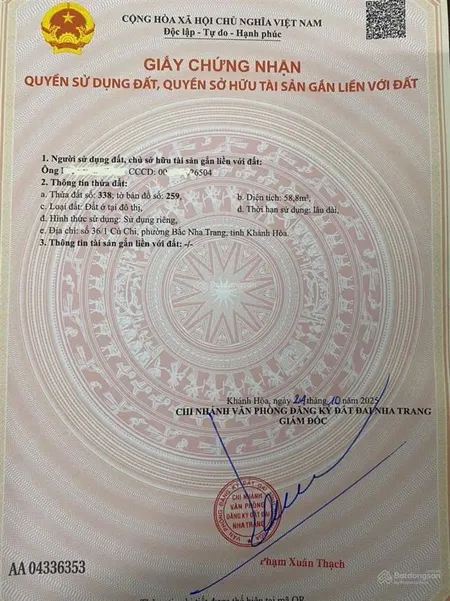 CỘNG HÒA XÃ HỘI CHỦ NGHĨA VIỆT NAM
Độc lập - Tự do - Hạnh phúc
GIẤY CHỨNG NHẬN
QUYỀN SỬ DỤNG ĐẤT, QUYỀN SỞ HỮU TÀI SẢN GẮN LIỀN VỚI ĐẤT
1. Người sử dụng đất, chủ sở hữu tài sản gắn liền với đất:
Ông CCCD: 26504
2. Thông tin thửa đất:
a. Thửa đất số: 338, tờ bản đồ số: 259, b. Diện tích: 58,8m²,
c. Loại đất: Đất ở tại đô thị, d. Thời hạn sử dụng: lâu dài,
đ. Hình thức sử dụng: Sử dụng riêng,
e. Địa chỉ: số 36/1 Củ Chi, phường Bắc Nha Trang, tỉnh Khánh Hòa.
3. Thông tin tài sản gắn liền với đất: -/-
Khánh Hòa, ngày 24 tháng 10 năm 2025
CHI NHÁNH VĂN PHÒNG ĐĂNG KÝ ĐẤT ĐAI NHA TRANG
GIÁM ĐỐC
VĂN PHÒNG ĐĂNG KÝ ĐẤT ĐAI
CHI NHÁNH
VĂN PHÒNG
ĐĂNG KÝ ĐẤT ĐAI
NHA TRANG
Phạm Xuân Thạch
AA 04336353
Batdongsan